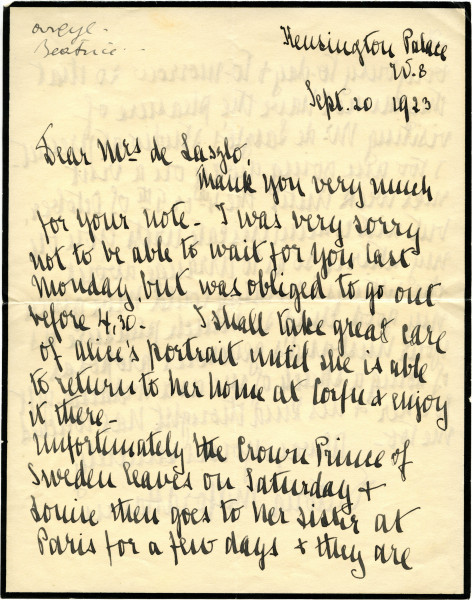 Argyll.
Beatrice...
Kensington Palace
W.8
Sept. 20 1923
Dear Mrs de Laszlo,
Thank you very much
for your note_ I was very sorry
not to be able to wait for you last
Monday, but was obliged to go out
before 4,30. I shall take great care
of Alice's portrait until she is able
to return to her home at Corfu & enjoy
it there_
Unfortunately the Crown Prince of
Sweden leaves on Saturday &
Louise then goes to her sister at
Paris for a few days & they are